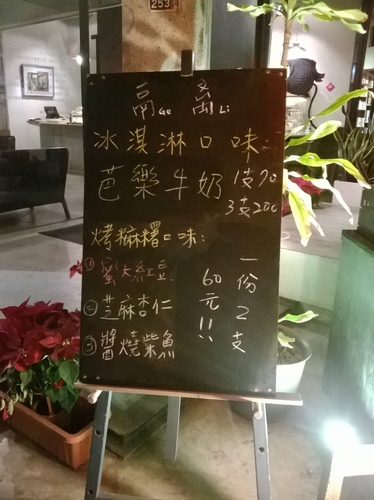 253
鬲Ge 离Li
冰淇淋口味:
芭樂牛奶 1支70
3支200
烤麻糬口味:
①蜜大紅豆
②芝麻杏仁
③醬燒柴魚
60元!!
一份2支